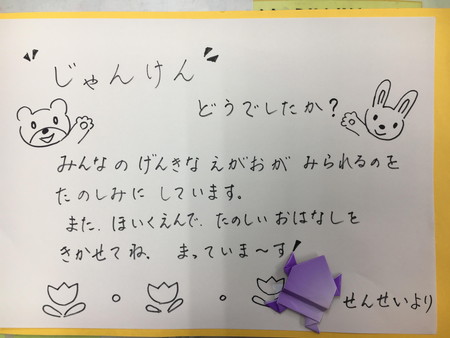 "じゃんけん"
どうでしたか?
みんなの げんきな えがおが みられるのを
たのしみに しています。
また、ほいくえんで、たのしい おはなしを
きかせてね。 まっていま〜す!
せんせいより